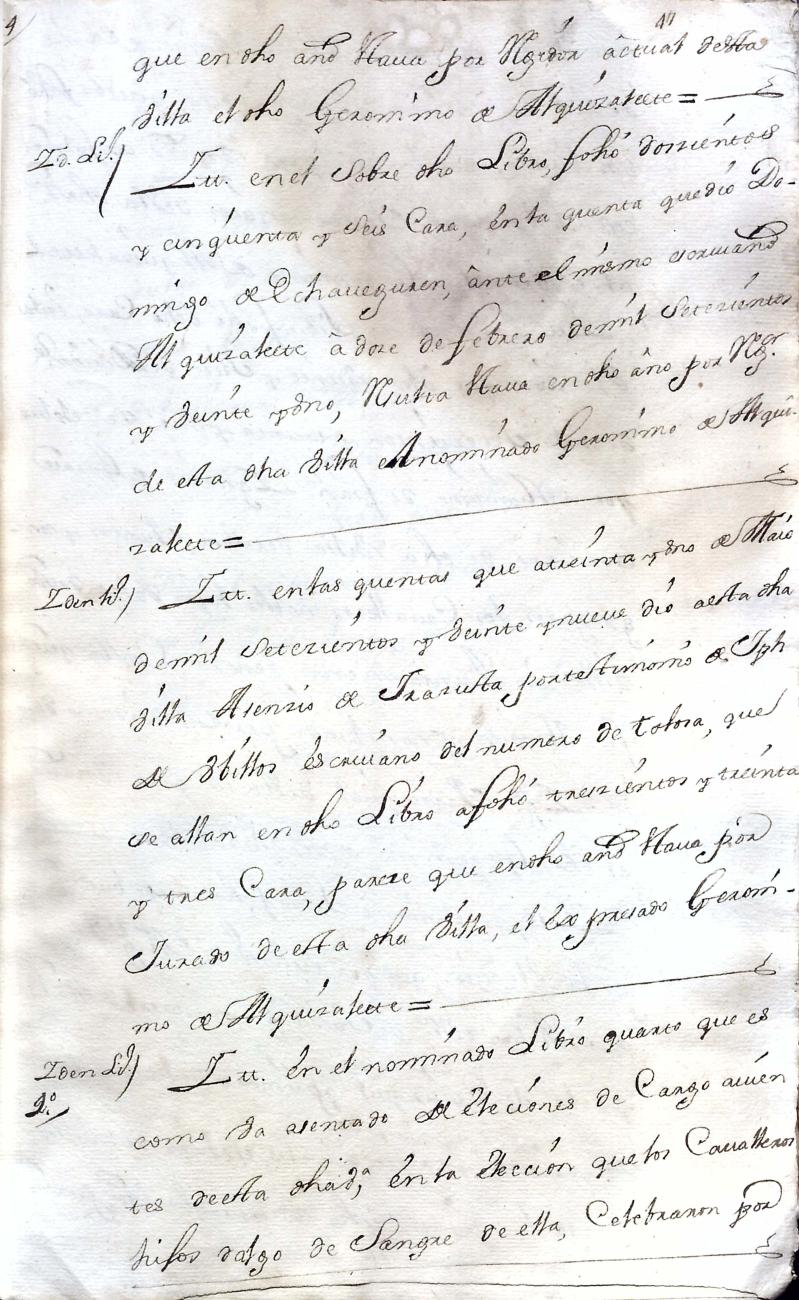 que en dho año Haua por Regidor áctual desta
Villa el dho Geronimo de Alquizalete=
Id. Li.
Itt. en el sobre dho Libro, folió dozziéntos
y cinqüenta y seis Cara, én la quenta que dió Do-
mingo de Echaueguren, ànte el mismo escriuano
Alquizalete à doze de febrero de mil setezientos
y Veinte y Vno, Resulta Haua en dho año por Regr.
de esta dha Villa el nominado Geronimo de Alqui-
zalete=
Iden Li.
Itt. en las quentas que a treinta y Vno de Maio
de mil setezientos y Veinte y nueue dió a esta dha
Villa Asenzio de Irazusta por testimonio de Jph
de Vbillos éscriuano del numero de tolosa, que
se allan en dho Libro a folió trezzientos y treinta
y tres Cara, pareze que en dho año Haua por
Jurado de esta dha Villa, el Expresado Geroni-
mo de Alquizalete=
Iden Li.
2º
Itt. én el nominado Libro quarto que es
como Va asentado de éleciónes de Cargo auien
tes de esta dha Va, én la élección que los Caualleros
hijos dalgo de Sangre de ella, Celebraron por